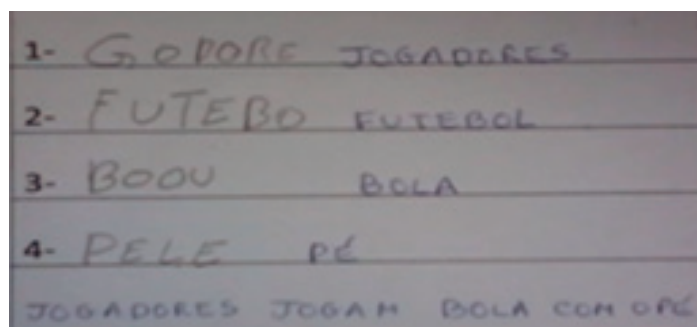 1- GODORE JOGADORES
2- FUTEBO FUTEBOL
3- BOOU BOLA
4- PELE PÉ
JOGADORES JOGAM BOLA COM O PÉ